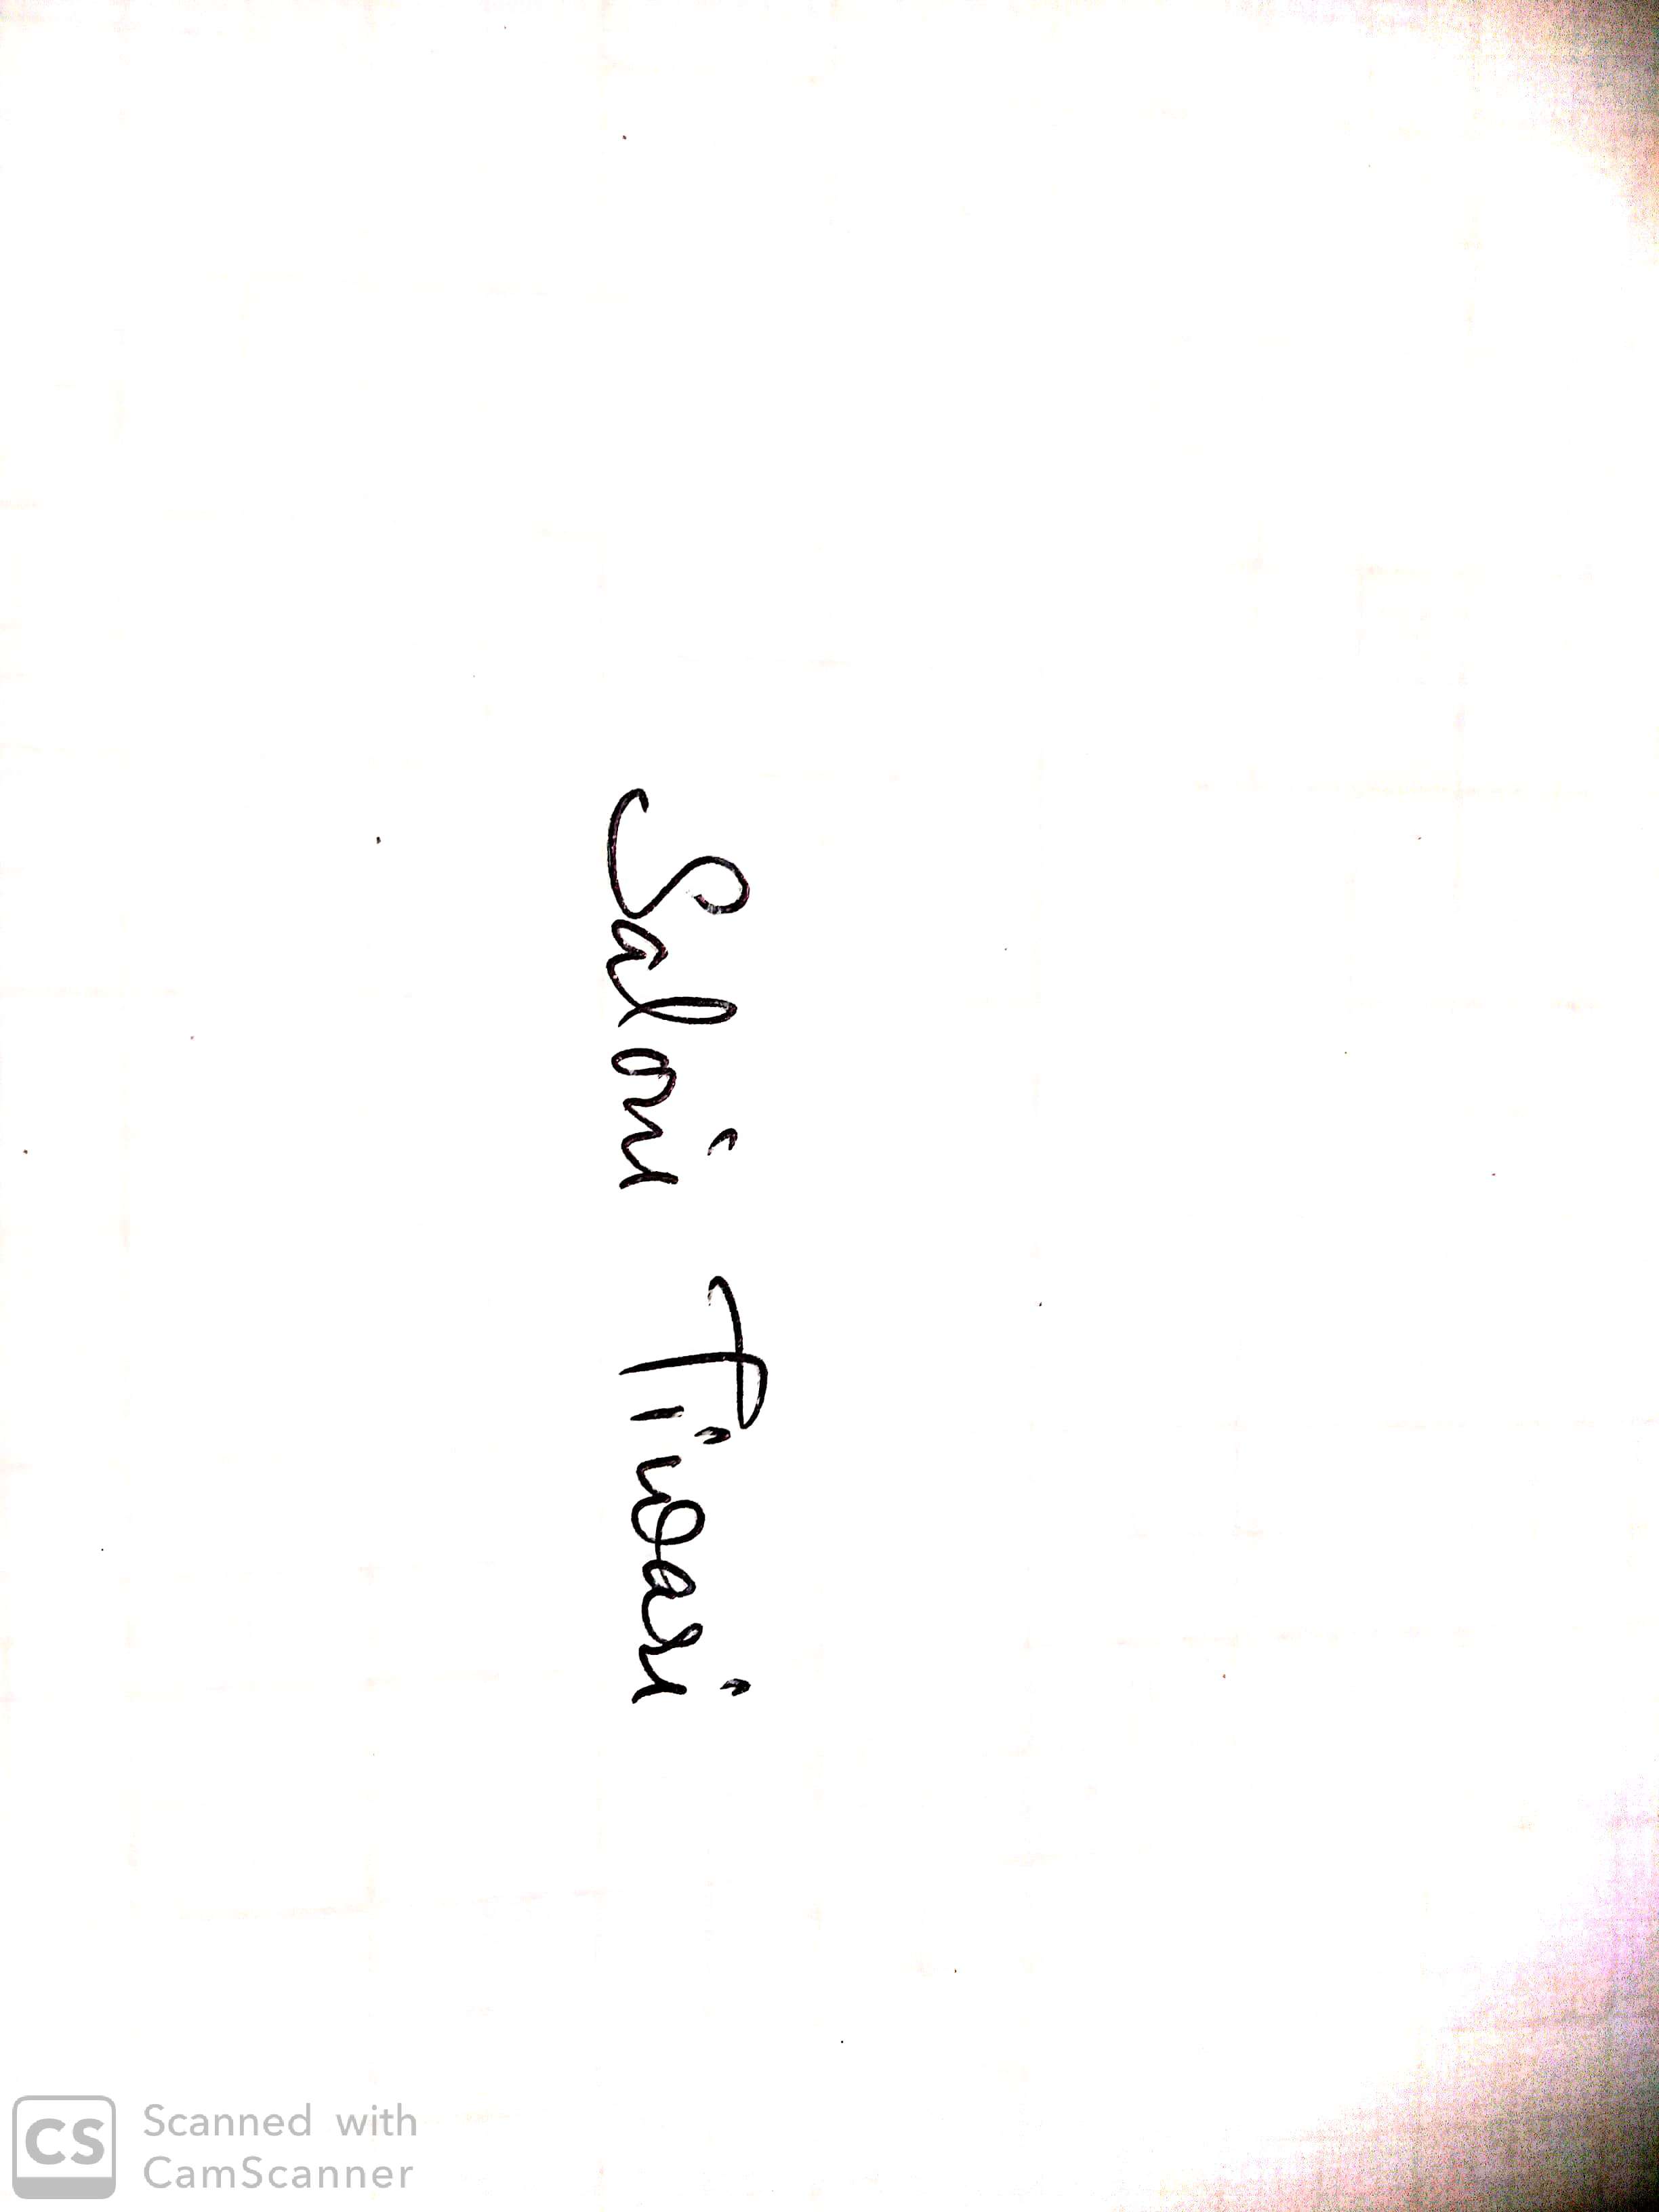 Saloni Tiwari
CS
Scanned with
CamScanner